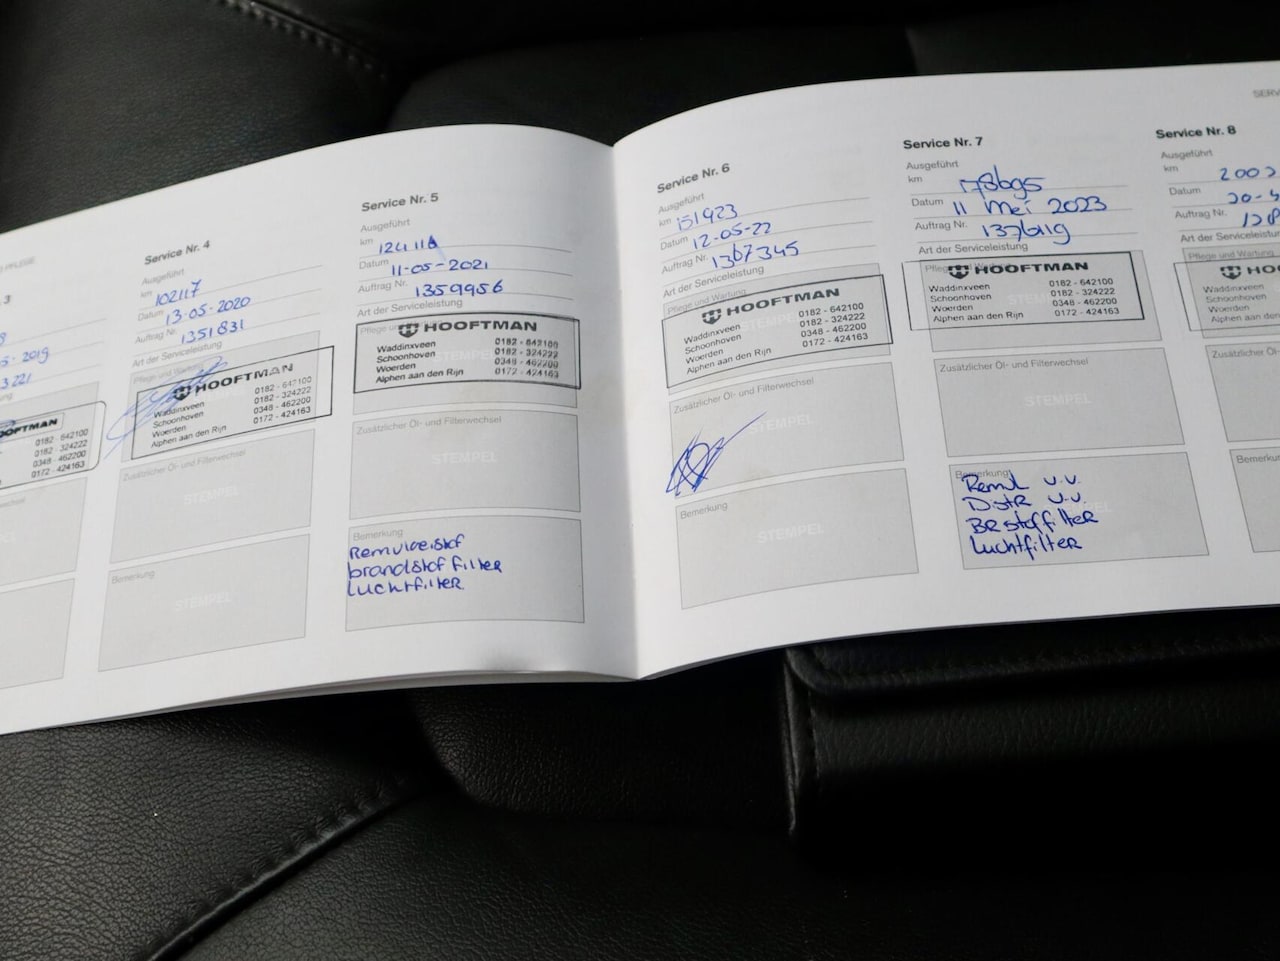 PFLEGE
3
2019
3221
OOFTMAN
0182 - 642100
0182 - 324222
0348 - 462200
0172 - 424163
Service Nr. 4
Ausgeführt
km 102117
Datum 13-05-2020
Auftrag Nr. 1351831
Art der Serviceleistung
Pflege und Wartung
HOOFTMAN
Waddinxveen 0182 - 642100
Schoonhoven 0182 - 324222
Woerden 0348 - 462200
Alphen aan den Rijn 0172 - 424163
Zusätzlicher Öl- und Filterwechsel
STEMPEL
Bemerkung
STEMPEL
Service Nr. 5
Ausgeführt
km
Datum 11-05-2021
Auftrag Nr. 1359956
Art der Serviceleistung
Pflege
HOOFTMAN
Waddinxveen 0182 - 642100
Schoonhoven 0182 - 324222
Woerden 0348 - 462200
Alphen aan den Rijn 0172 - 424163
Zusätzlicher Öl- und Filterwechsel
STEMPEL
Bemerkung
Remvloeistof
brandstof filter
Luchtfilter
Service Nr. 6
Ausgeführt
km 151923
Datum 12-05-22
Auftrag Nr. 1367345
Art der Serviceleistung
Pflege und Wartung
HOOFTMAN
Waddinxveen 0182 - 642100
Schoonhoven 0182 - 324222
Woerden 0348 - 462200
Alphen aan den Rijn 0172 - 424163
Zusätzlicher Öl- und Filterwechsel
Bemerkung
STEMPEL
Service Nr. 7
Ausgeführt
km 178695
Datum 11 Mei 2023
Auftrag Nr.
Art der Serviceleistung
Pflege
HOOFTMAN
Waddinxveen 0182 - 642100
Schoonhoven 0182 - 324222
Woerden 0348 - 462200
Alphen aan den Rijn 0172 - 424163
Zusätzlicher Öl- und Filterwechsel
STEMPEL
Bemerkung
Remvl v.v.
Distr v.v.
Luchtfilter
SERV
Service Nr. 8
Ausgeführt
km 200
Datum 20-
Auftrag Nr.
Art der Serviceleistun
Pflege und Wartung
HOOF
Waddinxveen
Schoonhoven
Woerden
Alphen aan den Rijn
Zusätzlicher Öl- und
Bemerkung